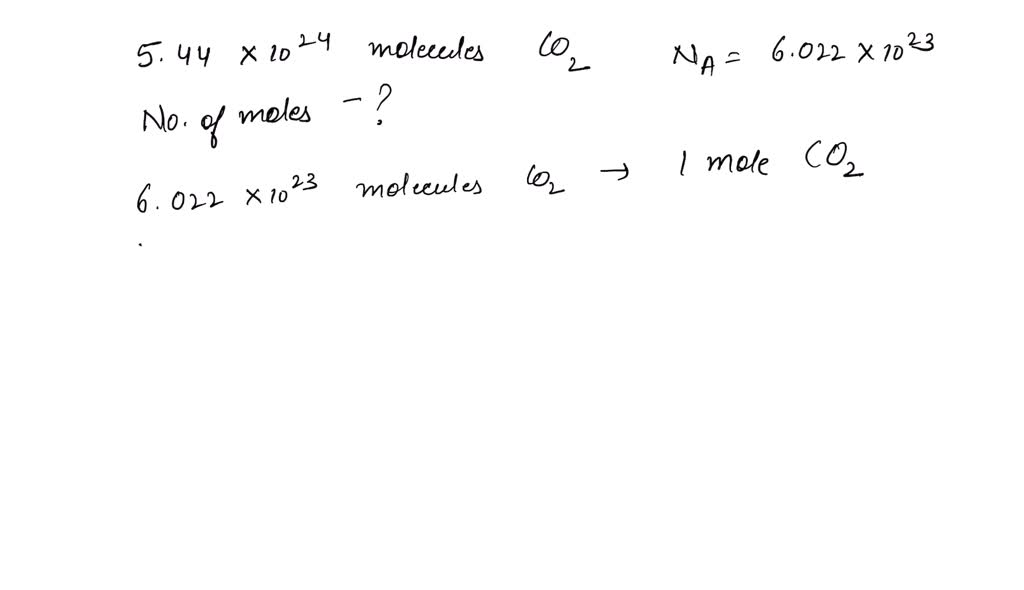 5.44 × 10²⁴ molecules CO₂ N_A = 6.022 × 10²³
No. of moles - ?
6.022 × 10²³ molecules CO₂ → 1 mole CO₂